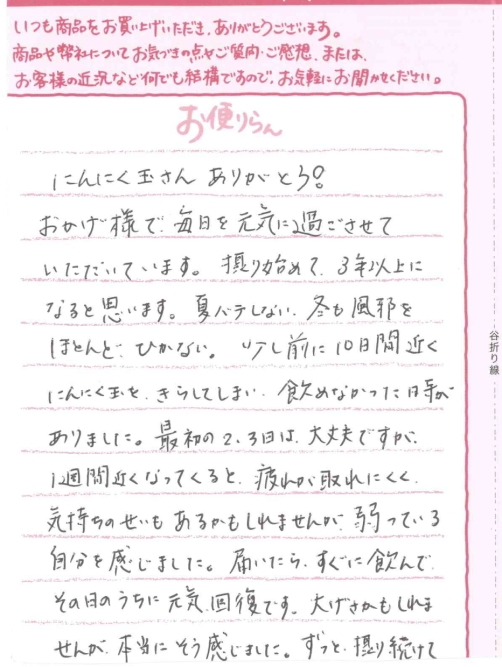 いつも商品をお買い上げいただき、ありがとうございます。
商品や弊社についてお気づきの点やご質問・ご感想、または、
お客様の近況など何でも結構ですので、お気軽にお聞かせください。
お便りらん
にんにく玉さん ありがとう!
おかげ様で、毎日を元気に過ごさせて
いただいています。摂り始めて、3年以上に
なると思います。夏バテしない、冬も風邪を
ほとんど、ひかない。少し前に10日間近く
にんにく玉を、きらしてしまい、飲めなかった日等が
ありました。最初の2、3日は、大丈夫ですが、
1週間近くなってくると、疲れが取れにくく、
気持ちのせいもあるかもしれませんが、弱っている
自分を感じました。届いたら、すぐに飲んで、
その日のうちに元気、回復です。大げさかもしれま
せんが、本当にそう感じました。ずっと、摂り続けて
谷折り線